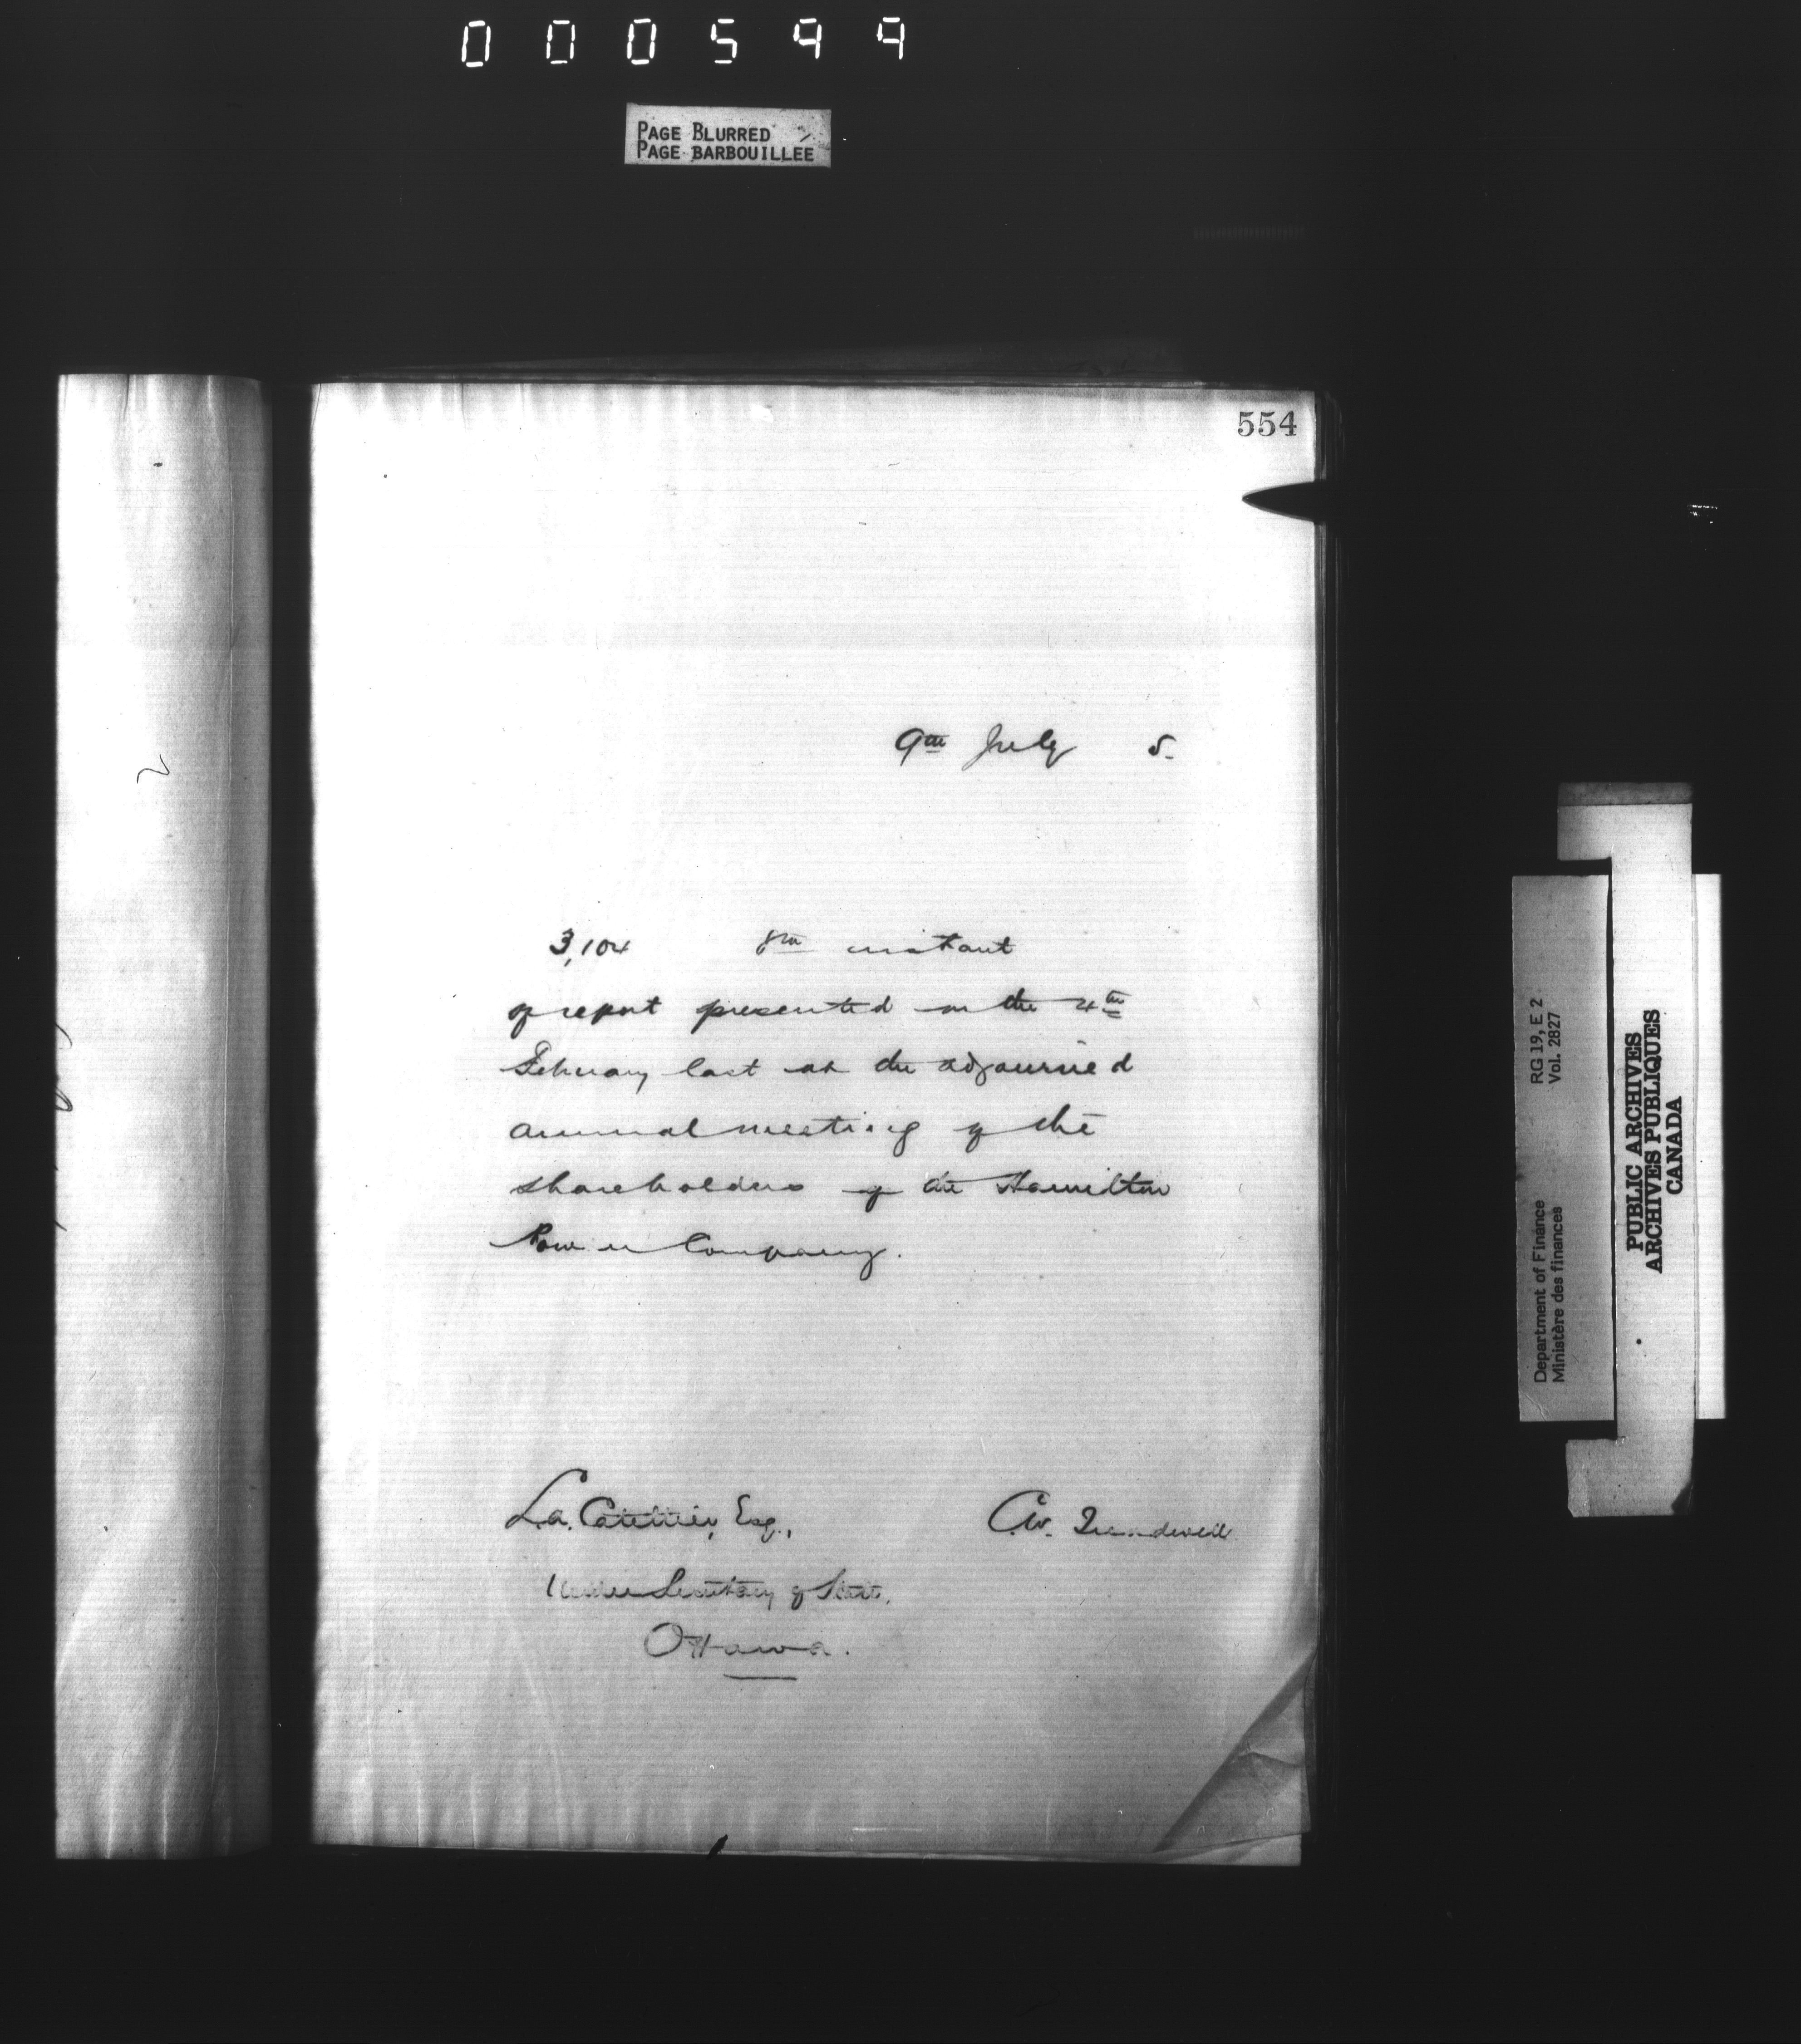 000599
PAGE BLURRED
PAGE BARBOUILLÉE
554
9th July 5.
3,104 8th instant
of report presented on the 4th
February last at the adjourned
annual meeting of the
shareholders of the Hamilton
Powder Company.
L.A. Catellier, Esq.,
C.W. Treadwell
Under Secretary of State,
Ottawa.
RG 19, E 2
Vol. 2827
Department of Finance
Ministère des finances
PUBLIC ARCHIVES
ARCHIVES PUBLIQUES
CANADA